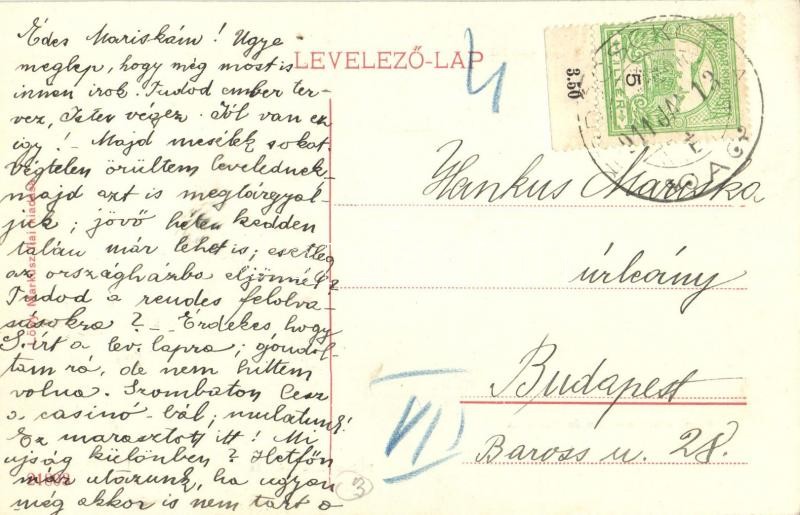 Édes Mariskám! Ugye
meglep, hogy még most is
innen irok. Tudod ember ter-
vez, Isten végez. Jól van ez
így! – Majd mesélek sokat
Végtelen örültem levelednek,
majd azt is megtárgyal-
juk; jövő héten kedden
talán már lehet is; esetleg
az országházba eljönnél?
Tudod a rendes felolva-
sásokra? – Érdekes, hogy
S. írt a lev. lapra; gondol-
tam rá, de nem hittem
volna. Szombaton lesz
a casinó-bál; mulatunk!
Ez marasztott itt! Mi
ujság különben? Hetfőn
már utazunk, ha ugyan
még akkor is nem tart a
LEVELEZŐ-LAP
Hankus Mariska
úrleány
Budapest
Baross u. 28.
VIII
3.50
5
FILLÉR
911 JAN 13
21898
3